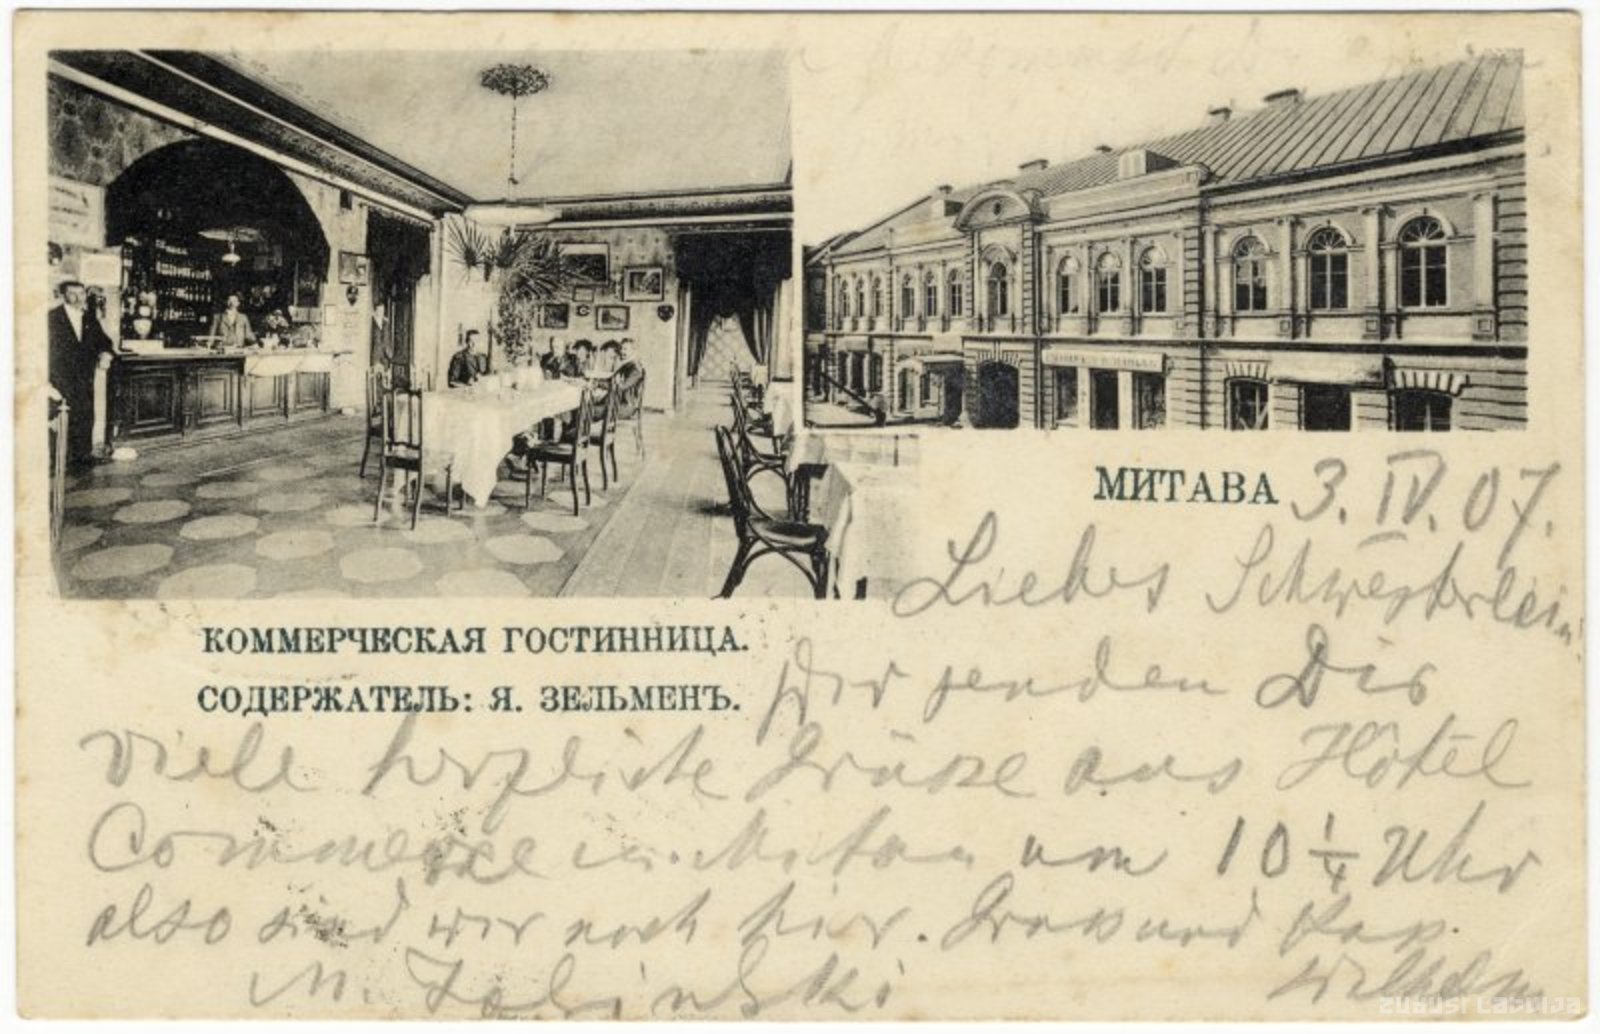 МИТАВА 3. IV. 07.
Liebes Schwesterlein
КОММЕРЧЕСКАЯ ГОСТИННИЦА.
СОДЕРЖАТЕЛЬ: Я. ЗЕЛЬМЕНЪ.
Wir senden Dir
viele herzliche Grüsse aus Hôtel
Commerce in Mitau um 10 1/4 Uhr
also sind wir noch hier. Gruss und
M. Wilhelm
ZUDUSI LATVIJA